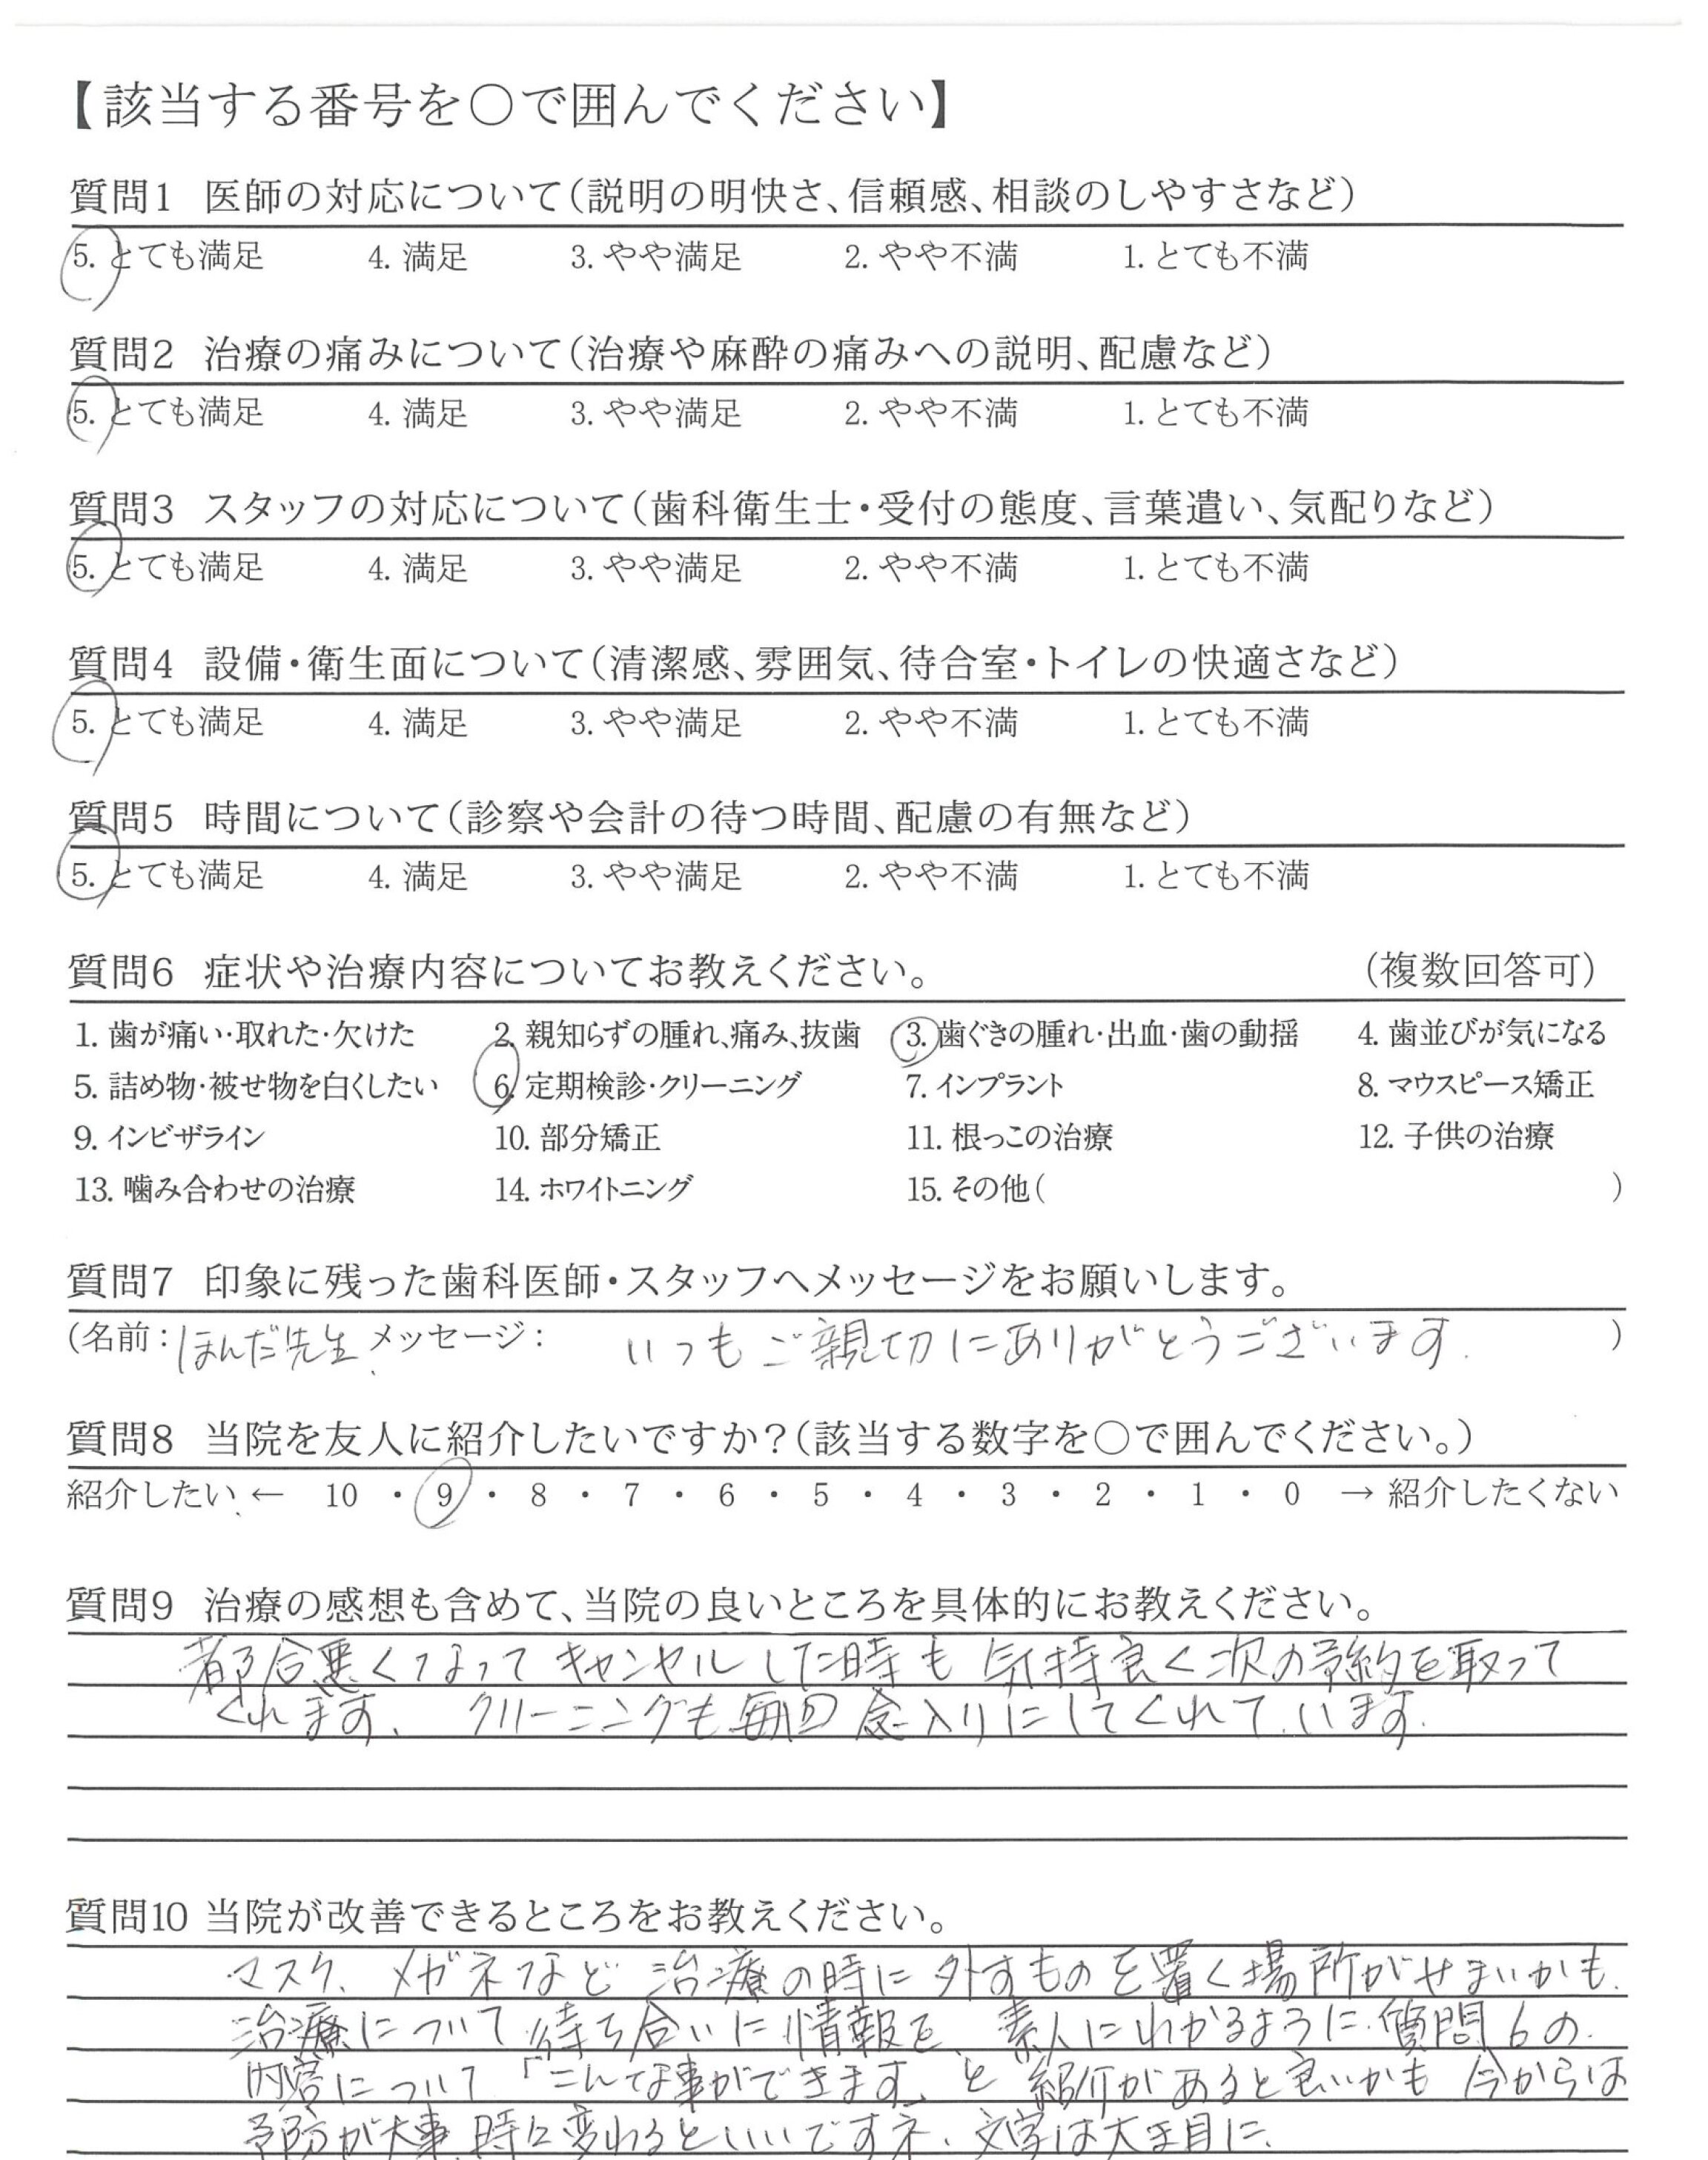 【該当する番号を○で囲んでください】
質問1 医師の対応について(説明の明快さ、信頼感、相談のしやすさなど)
5. とても満足 4. 満足 3. やや満足 2. やや不満 1. とても不満
質問2 治療の痛みについて(治療や麻酔の痛みへの説明、配慮など)
5. とても満足 4. 満足 3. やや満足 2. やや不満 1. とても不満
質問3 スタッフの対応について(歯科衛生士・受付の態度、言葉遣い、気配りなど)
5. とても満足 4. 満足 3. やや満足 2. やや不満 1. とても不満
質問4 設備・衛生面について(清潔感、雰囲気、待合室・トイレの快適さなど)
5. とても満足 4. 満足 3. やや満足 2. やや不満 1. とても不満
質問5 時間について(診察や会計の待つ時間、配慮の有無など)
5. とても満足 4. 満足 3. やや満足 2. やや不満 1. とても不満
質問6 症状や治療内容についてお教えください。 (複数回答可)
1. 歯が痛い・取れた・欠けた 2. 親知らずの腫れ、痛み、抜歯 3. 歯ぐきの腫れ・出血・歯の動揺 4. 歯並びが気になる
5. 詰め物・被せ物を白くしたい 6. 定期検診・クリーニング 7. インプラント 8. マウスピース矯正
9. インビザライン 10. 部分矯正 11. 根っこの治療 12. 子供の治療
13. 噛み合わせの治療 14. ホワイトニング 15. その他( )
質問7 印象に残った歯科医師・スタッフへメッセージをお願いします。
(名前:ほんだ先生 メッセージ: いつもご親切にありがとうございます. )
質問8 当院を友人に紹介したいですか?(該当する数字を○で囲んでください。)
紹介したい ← 10 ・ 9 ・ 8 ・ 7 ・ 6 ・ 5 ・ 4 ・ 3 ・ 2 ・ 1 ・ 0 → 紹介したくない
質問9 治療の感想も含めて、当院の良いところを具体的にお教えください。
都合悪くなってキャンセルした時も気持良く次の予約を取って
くれます、クリーニングも毎回念入りにしてくれています.
質問10 当院が改善できるところをお教えください。
マスク、メガネなど治療の時に外すものを置く場所がせまいかも.
治療について待ち合いに情報を、素人にわかるように.質問6の
内容について「こんな事ができます」と紹介があると良いかも 今からは
予防が大事.時々変わるといいですネ.文字は大き目に.